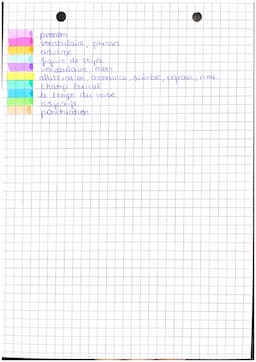 pronom
vocabulaire, phrases
adverbe
figure de style
vocabulaire, mots
allitération, assonance, refrain, rime
champ lexical
le temps du verbe
adjectifs
ponctuation